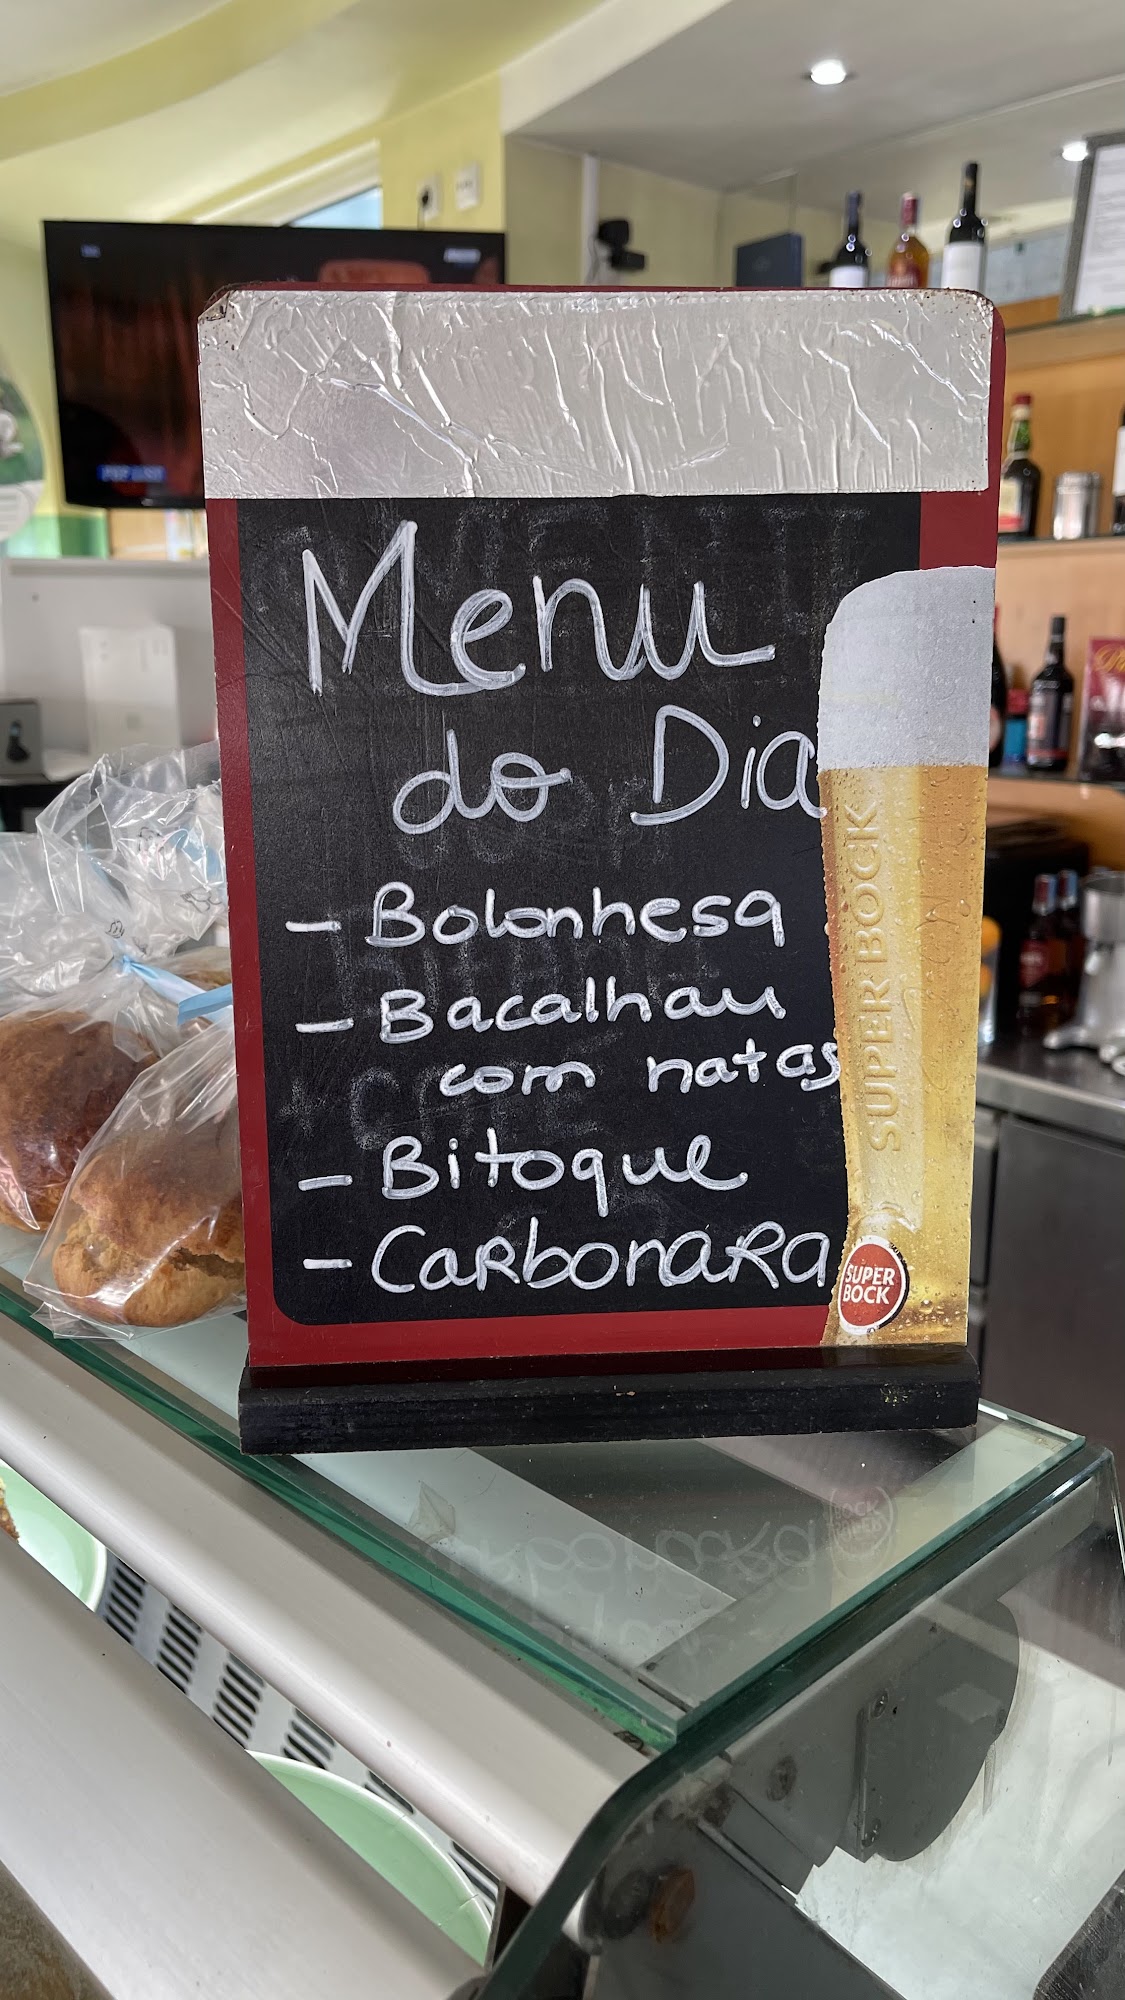 Menu
do Dia
- Bolonhesa
- Bacalhau
com natas
- Bitoque
- Carbonara
SUPER BOCK
SUPER
BOCK